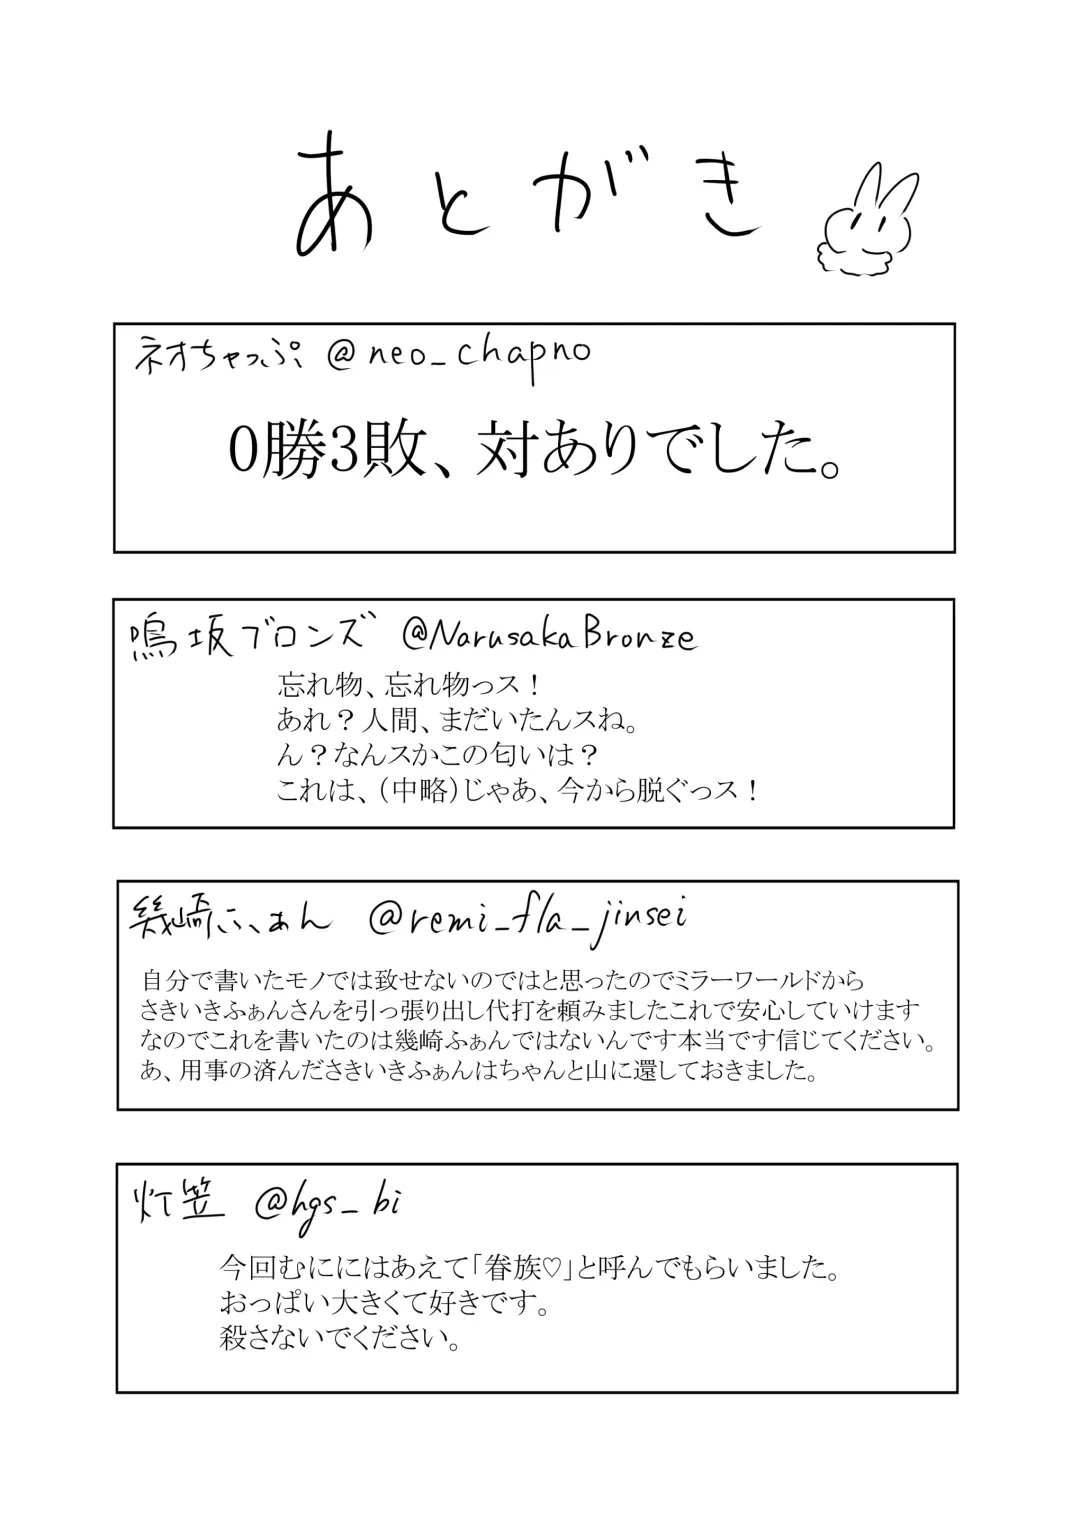 あとがき
ネオちゃっぷ @neo_chapno
0勝3敗、対ありでした。
鳴坂ブロンズ @NarusakaBronze
忘れ物、忘れ物っス！
あれ？人間、まだいたんスね。
ん？なんスかこの匂いは？
これは、（中略）じゃあ、今から脱ぐっス！
幾崎ふぁん @remi_fla_jinsei
自分で書いたモノでは致せないのではと思ったのでミラーワールドから
さきいきふぁんさんを引っ張り出し代打を頼みましたこれで安心していけます
なのでこれを書いたのは幾崎ふぁんではないんです本当です信じてください。
あ、用事の済んださきいきふぁんはちゃんと山に還しておきました。
灯笠 @hgs_bi
今回むににはあえて「眷族♡」と呼んでもらいました。
おっぱい大きくて好きです。
殺さないでください。